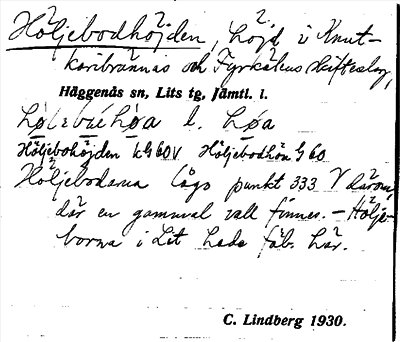 Höljebodhöjden, höjd i Knut-
karibrännas och Fyrkåsens skifteslag,
Häggenås sn, Lits tg, Jämtl. l.
l. høa
Höljebohöjden kG60V Höljebodhön G60
Höljebodarna lågo punkt 333 V därom,
där en gammal vall finnes. – Hölje-
borna i Lit hade fäb. här.
C. Lindberg 1930.